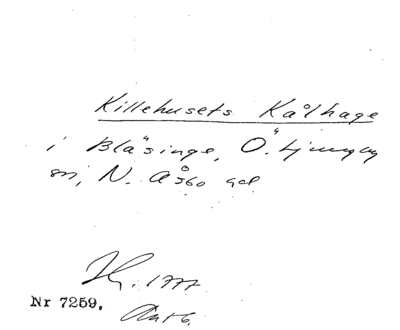 Killehusets Kålhage
i Bläsinge, Ö. Ljungby
sn, N. Åsbo hd
1777.
Nr 7259.